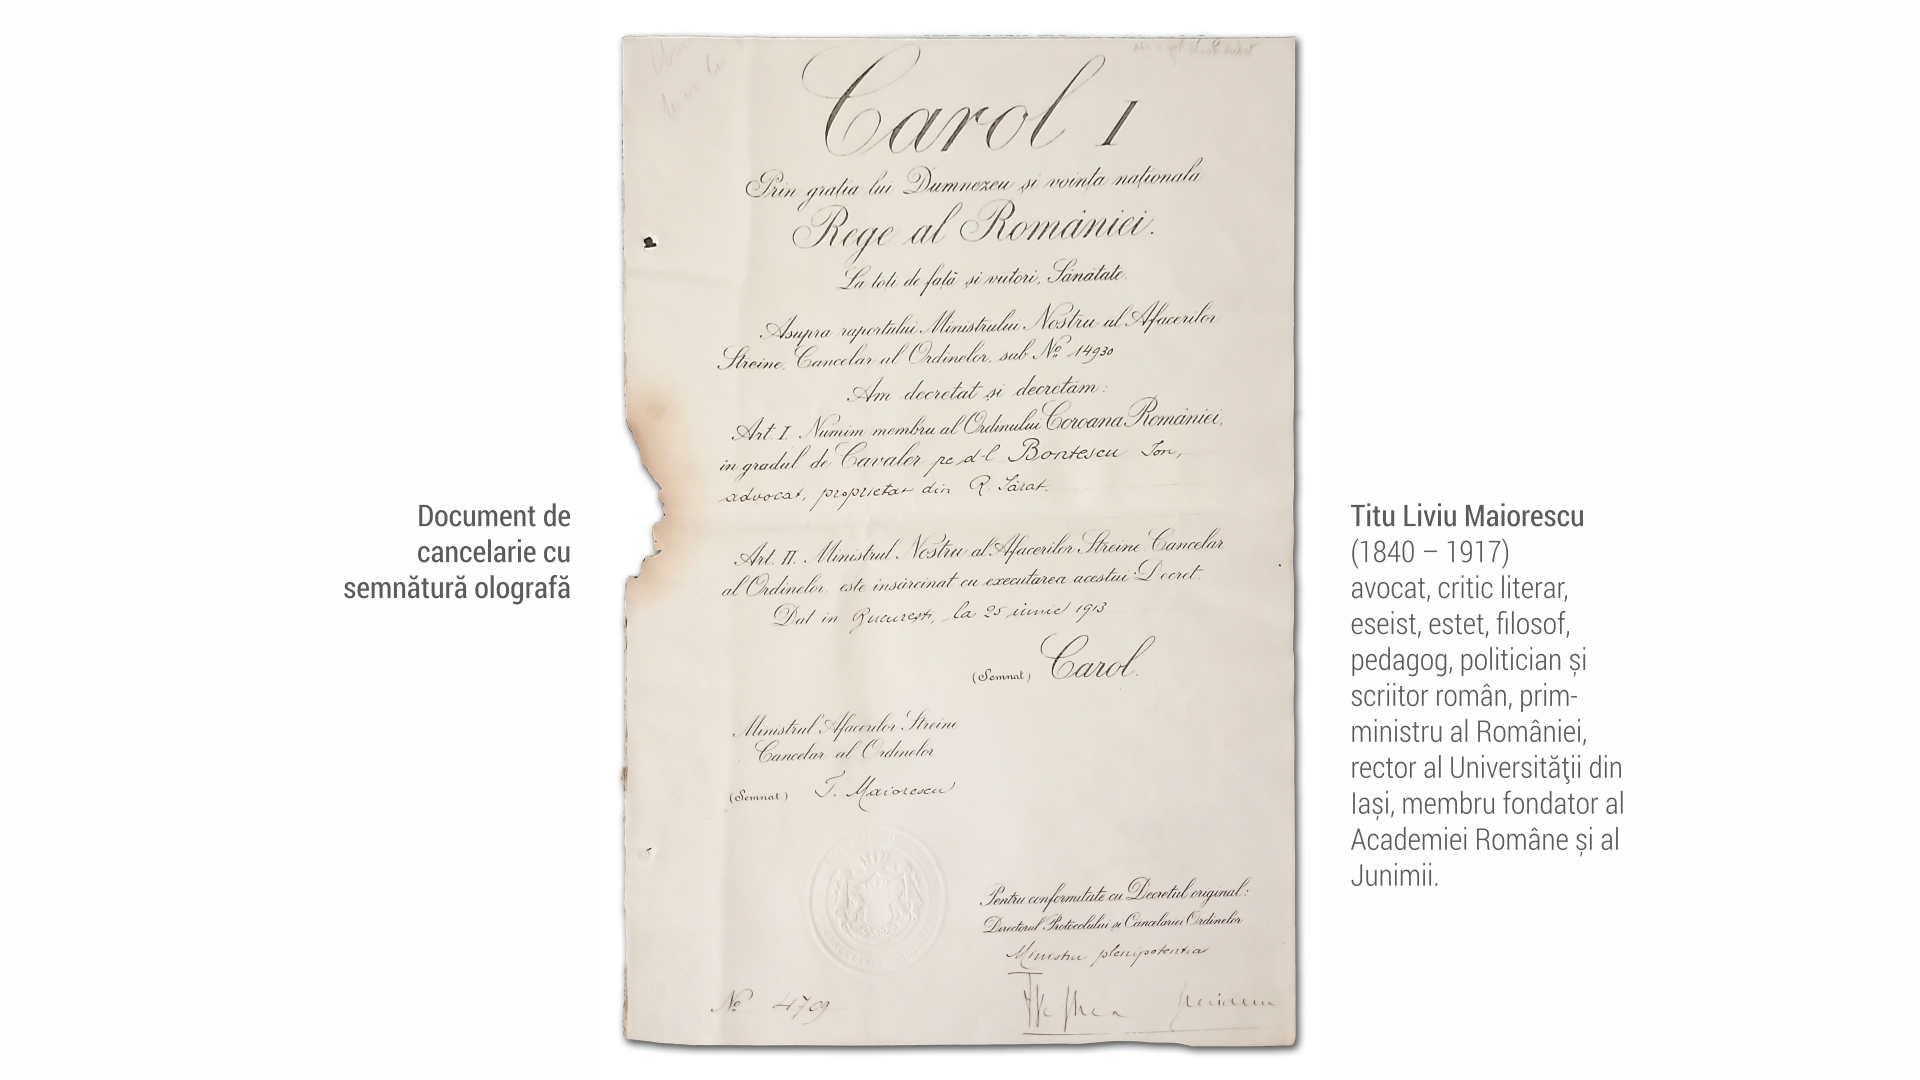 Document de
cancelarie cu
semnătură olografă
Carol I
Prin grația lui Dumnezeu și voința națională
Rege al României.
La toți de față și viitori, Sănătate.
Asupra raportului Ministrului Nostru al Afacerilor
Streine, Cancelar al Ordinelor, sub No. 14930
Am decretat și decretăm:
Art. I. Numim membru al Ordinului Coroana României,
in gradul de Cavaler pe d-l Bontescu Ion,
advocat, proprietar din R. Sărat.
Art. II. Ministrul Nostru al Afacerilor Streine Cancelar
al Ordinelor, este însărcinat cu executarea acestui Decret.
Dat in București, la 25 iunie 1913
(Semnat) Carol.
Ministrul Afacerilor Streine
Cancelar al Ordinelor
(Semnat) T. Maiorescu
Pentru conformitate cu Decretul original:
Directorul Protocolului și Cancelariei Ordinelor
Ministru plenipotentiar
No. 4709
Titu Liviu Maiorescu
(1840 – 1917)
avocat, critic literar,
eseist, estet, filosof,
pedagog, politician și
scriitor român, prim-
ministru al României,
rector al Universităţii din
Iași, membru fondator al
Academiei Române și al
Junimii.